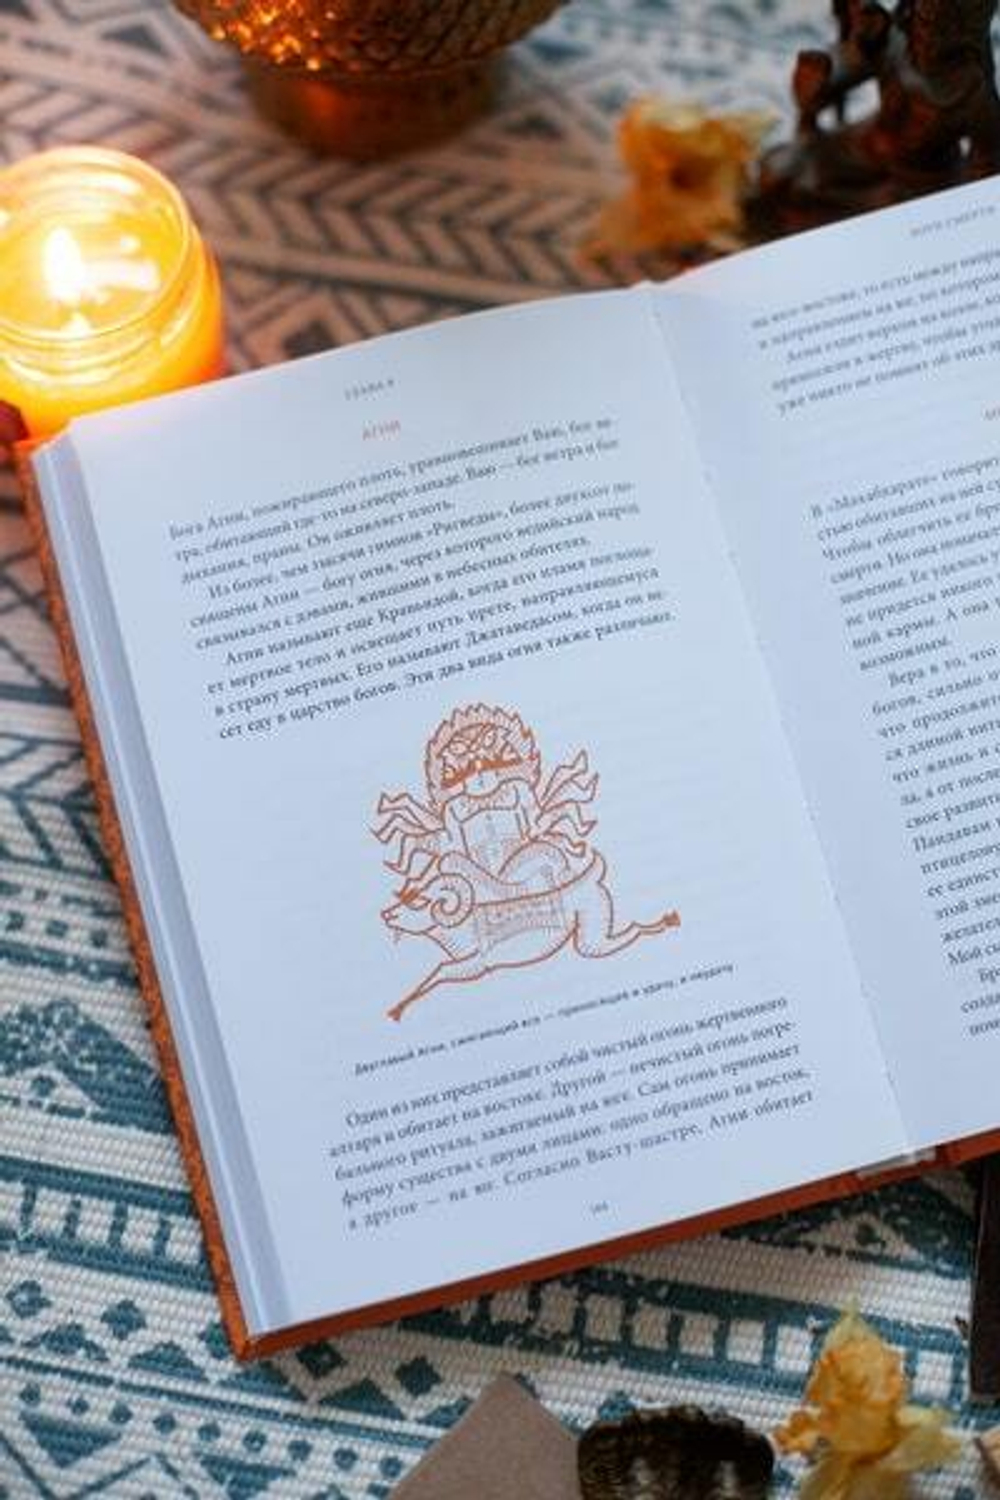 ГЛАВА 8
АГНИ
Бога Агни, пожирающего плоть, уравновешивает Ваю, бог ве-
тра, обитающий где-то на северо-западе. Ваю — бог ветра и бог
дыхания, праны. Он оживляет плоть.
Из более, чем тысячи гимнов «Ригведы», более двухсот по-
священы Агни — богу огня, через которого ведийский народ
связывался с дэвами, жившими в небесных обителях.
Агни называют еще Кравьядой, когда его пламя поглоща-
ет мертвое тело и освещает путь прете, направляющемуся
в страну мертвых. Его называют Джатаведасом, когда он не-
сет еду в царство богов. Эти два вида огня также различают.
Двуглавый Агни, сжигающий все — приносящий и удачу, и неудачу
Один из них представляет собой чистый огонь жертвенного
алтаря и обитает на востоке. Другой — нечистый огонь погре-
бального ритуала, зажигаемый на юге. Сам огонь принимает
форму существа с двумя лицами: одно обращено на восток,
а другое — на юг. Согласно Васту-шастре, Агни обитает
БОГИ СМЕРТИ
на юго-востоке, то есть между
и направлениями на юг, по которому
Агни ездит верхом на козле,
приносили в жертву, чтобы
уже никто не помнит об этих
В «Махабхарате» говорит
стью обитавших на ней
Чтобы облегчить ее
смерти. Но она
значение. Ее удалось
не придется никого
ной кармы. А она
возможным.
Вера в то, что
богов, сильно
что
ся длиной
что жизнь и
ла, а от
свое
Пандавам
ее
этой
Мой